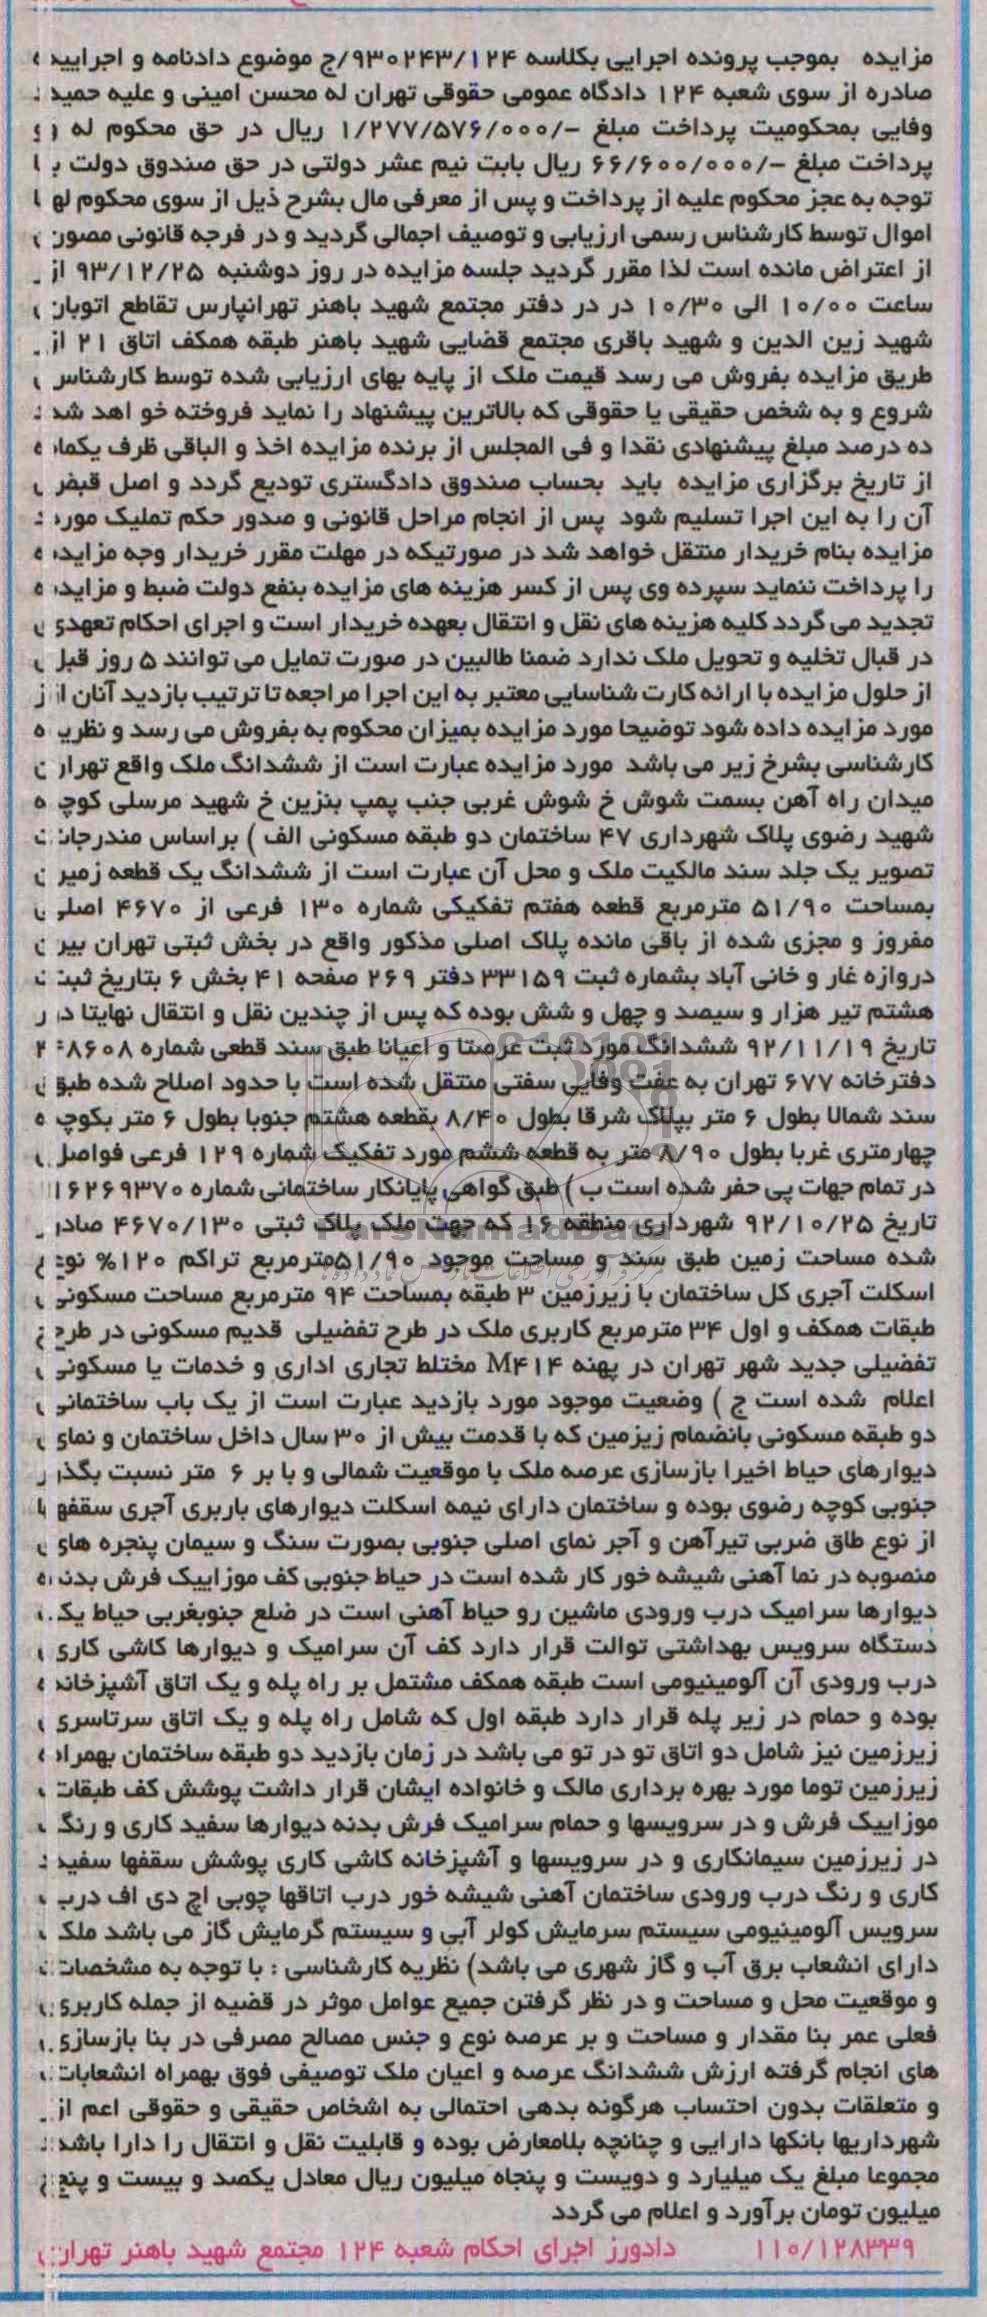 مزایده بموجب پرونده اجرایی بکلاسه ۹۳۰۲۴۳/۱۲۴/ج موضوع دادنامه و اجراییه
صادره از سوی شعبه ۱۲۴ دادگاه عمومی حقوقی تهران له محسن امینی و علیه حمید
وفایی بمحکومیت پرداخت مبلغ -/۱/۲۷۷/۵۷۶/۰۰۰ ریال در حق محکوم له و
پرداخت مبلغ -/۶۶/۶۰۰/۰۰۰ ریال بابت نیم عشر دولتی در حق صندوق دولت با
توجه به عجز محکوم علیه از پرداخت و پس از معرفی مال بشرح ذیل از سوی محکوم لها
اموال توسط کارشناس رسمی ارزیابی و توصیف اجمالی گردید و در فرجه قانونی مصون
از اعتراض مانده است لذا مقرر گردید جلسه مزایده در روز دوشنبه ۹۳/۱۲/۲۵ از
ساعت ۱۰/۰۰ الی ۱۰/۳۰ در در دفتر مجتمع شهید باهنر تهرانپارس تقاطع اتوبان
شهید زین الدین و شهید باقری مجتمع قضایی شهید باهنر طبقه همکف اتاق ۲۱ از
طریق مزایده بفروش می رسد قیمت ملک از پایه بهای ارزیابی شده توسط کارشناس
شروع و به شخص حقیقی یا حقوقی که بالاترین پیشنهاد را نماید فروخته خو اهد شد
ده درصد مبلغ پیشنهادی نقدا و فی المجلس از برنده مزایده اخذ و الباقی ظرف یکماه
از تاریخ برگزاری مزایده باید بحساب صندوق دادگستری تودیع گردد و اصل قبض
آن را به این اجرا تسلیم شود پس از انجام مراحل قانونی و صدور حکم تملیک مورد
مزایده بنام خریدار منتقل خواهد شد در صورتیکه در مهلت مقرر خریدار وجه مزایده
را پرداخت ننماید سپرده وی پس از کسر هزینه های مزایده بنفع دولت ضبط و مزایده
تجدید می گردد کلیه هزینه های نقل و انتقال بعهده خریدار است و اجرای احکام تعهدی
در قبال تخلیه و تحویل ملک ندارد ضمنا طالبین در صورت تمایل می توانند ۵ روز قبل
از حلول مزایده با ارائه کارت شناسایی معتبر به این اجرا مراجعه تا ترتیب بازدید آنان از
مورد مزایده داده شود توضیحا مورد مزایده بمیزان محکوم به بفروش می رسد و نظریه
کارشناسی بشرح زیر می باشد مورد مزایده عبارت است از ششدانگ ملک واقع تهران
میدان راه آهن بسمت شوش خ شوش غربی جنب پمپ بنزین خ شهید مرسلی کوچه
شهید رضوی پلاک شهرداری ۴۷ ساختمان دو طبقه مسکونی الف ) براساس مندرجات
تصویر یک جلد سند مالکیت ملک و محل آن عبارت است از ششدانگ یک قطعه زمین
بمساحت ۵۱/۹۰ مترمربع قطعه هفتم تفکیکی شماره ۱۳۰ فرعی از ۴۶۷۰ اصلی
مفروز و مجزی شده از باقی مانده پلاک اصلی مذکور واقع در بخش ثبتی تهران بیرن
دروازه غار و خانی آباد بشماره ثبت ۳۳۱۵۹ دفتر ۲۶۹ صفحه ۴۱ بخش ۶ بتاریخ ثبت
هشتم تیر هزار و سیصد و چهل و شش بوده که پس از چندین نقل و انتقال نهایتا در
تاریخ ۹۲/۱۱/۱۹ ششدانگ مورد ثبت عرصتا و اعیانا طبق سند قطعی شماره
دفترخانه ۶۷۷ تهران به عفت وفایی سفتی منتقل شده است با حدود اصلاح شده طبق
سند شمالا بطول ۶ متر بپلاک شرقا بطول ۸/۴۰ بقطعه هشتم جنوبا بطول ۶ متر بکوچه
چهارمتری غربا بطول ۸/۹۰ متر به قطعه ششم مورد تفکیک شماره ۱۲۹ فرعی فواصل
در تمام جهات پی حفر شده است ب ) طبق گواهی پایانکار ساختمانی شماره
تاریخ ۹۲/۱۰/۲۵ شهرداری منطقه ۱۶ که جهت ملک پلاک ثبتی ۴۶۷۰/۱۳۰ صادر
شده مساحت زمین طبق سند و مساحت موجود ۵۱/۹۰مترمربع تراکم ۱۲۰% نوع
اسکلت آجری کل ساختمان با زیرزمین ۳ طبقه بمساحت ۹۴ مترمربع مساحت مسکونی
طبقات همکف و اول ۳۴ مترمربع کاربری ملک در طرح تفضیلی قدیم مسکونی در طرح
تفضیلی جدید شهر تهران در پهنه M۴۱۴ مختلط تجاری اداری و خدمات یا مسکونی
اعلام شده است ج ) وضعیت موجود مورد بازدید عبارت است از یک باب ساختمانی
دو طبقه مسکونی بانضمام زیزمین که با قدمت بیش از ۳۰ سال داخل ساختمان و نمای
دیوارهای حیاط اخیرا بازسازی عرصه ملک با موقعیت شمالی و با بر ۶ متر نسبت بگذر
جنوبی کوچه رضوی بوده و ساختمان دارای نیمه اسکلت دیوارهای باربری آجری سقفها
از نوع طاق ضربی تیرآهن و آجر نمای اصلی جنوبی بصورت سنگ و سیمان پنجره های
منصوبه در نما آهنی شیشه خور کار شده است در حیاط جنوبی کف موزاییک فرش بدنه
دیوارها سرامیک درب ورودی ماشین رو حیاط آهنی است در ضلع جنوبغربی حیاط یک
دستگاه سرویس بهداشتی توالت قرار دارد کف آن سرامیک و دیوارها کاشی کاری
درب ورودی آن آلومینیومی است طبقه همکف مشتمل بر راه پله و یک اتاق آشپزخانه
بوده و حمام در زیر پله قرار دارد طبقه اول که شامل راه پله و یک اتاق سرتاسری
زیرزمین نیز شامل دو اتاق تو در تو می باشد در زمان بازدید دو طبقه ساختمان بهمراه
زیرزمین توما مورد بهره برداری مالک و خانواده ایشان قرار داشت پوشش کف طبقات
موزاییک فرش و در سرویسها و حمام سرامیک فرش بدنه دیوارها سفید کاری و رنگ
در زیرزمین سیمانکاری و در سرویسها و آشپزخانه کاشی کاری پوشش سقفها سفید
کاری و رنگ درب ورودی ساختمان آهنی شیشه خور درب اتاقها چوبی اچ دی اف درب
سرویس آلومینیومی سیستم سرمایش کولر آبی و سیستم گرمایش گاز می باشد ملک
دارای انشعاب برق آب و گاز شهری می باشد) نظریه کارشناسی : با توجه به مشخصات
و موقعیت محل و مساحت و در نظر گرفتن جمیع عوامل موثر در قضیه از جمله کاربری
فعلی عمر بنا مقدار و مساحت و بر عرصه نوع و جنس مصالح مصرفی در بنا بازسازی
های انجام گرفته ارزش ششدانگ عرصه و اعیان ملک توصیفی فوق بهمراه انشعابات
و متعلقات بدون احتساب هرگونه بدهی احتمالی به اشخاص حقیقی و حقوقی اعم از
شهرداریها بانکها دارایی و چنانچه بلامعارض بوده و قابلیت نقل و انتقال را دارا باشد
مجموعا مبلغ یک میلیارد و دویست و پنجاه میلیون ریال معادل یکصد و بیست و پنج
میلیون تومان برآورد و اعلام می گردد
۱۱۰/۱۲۸۳۳۹ دادورز اجرای احکام شعبه ۱۲۴ مجتمع شهید باهنر تهران
ParsNamadData